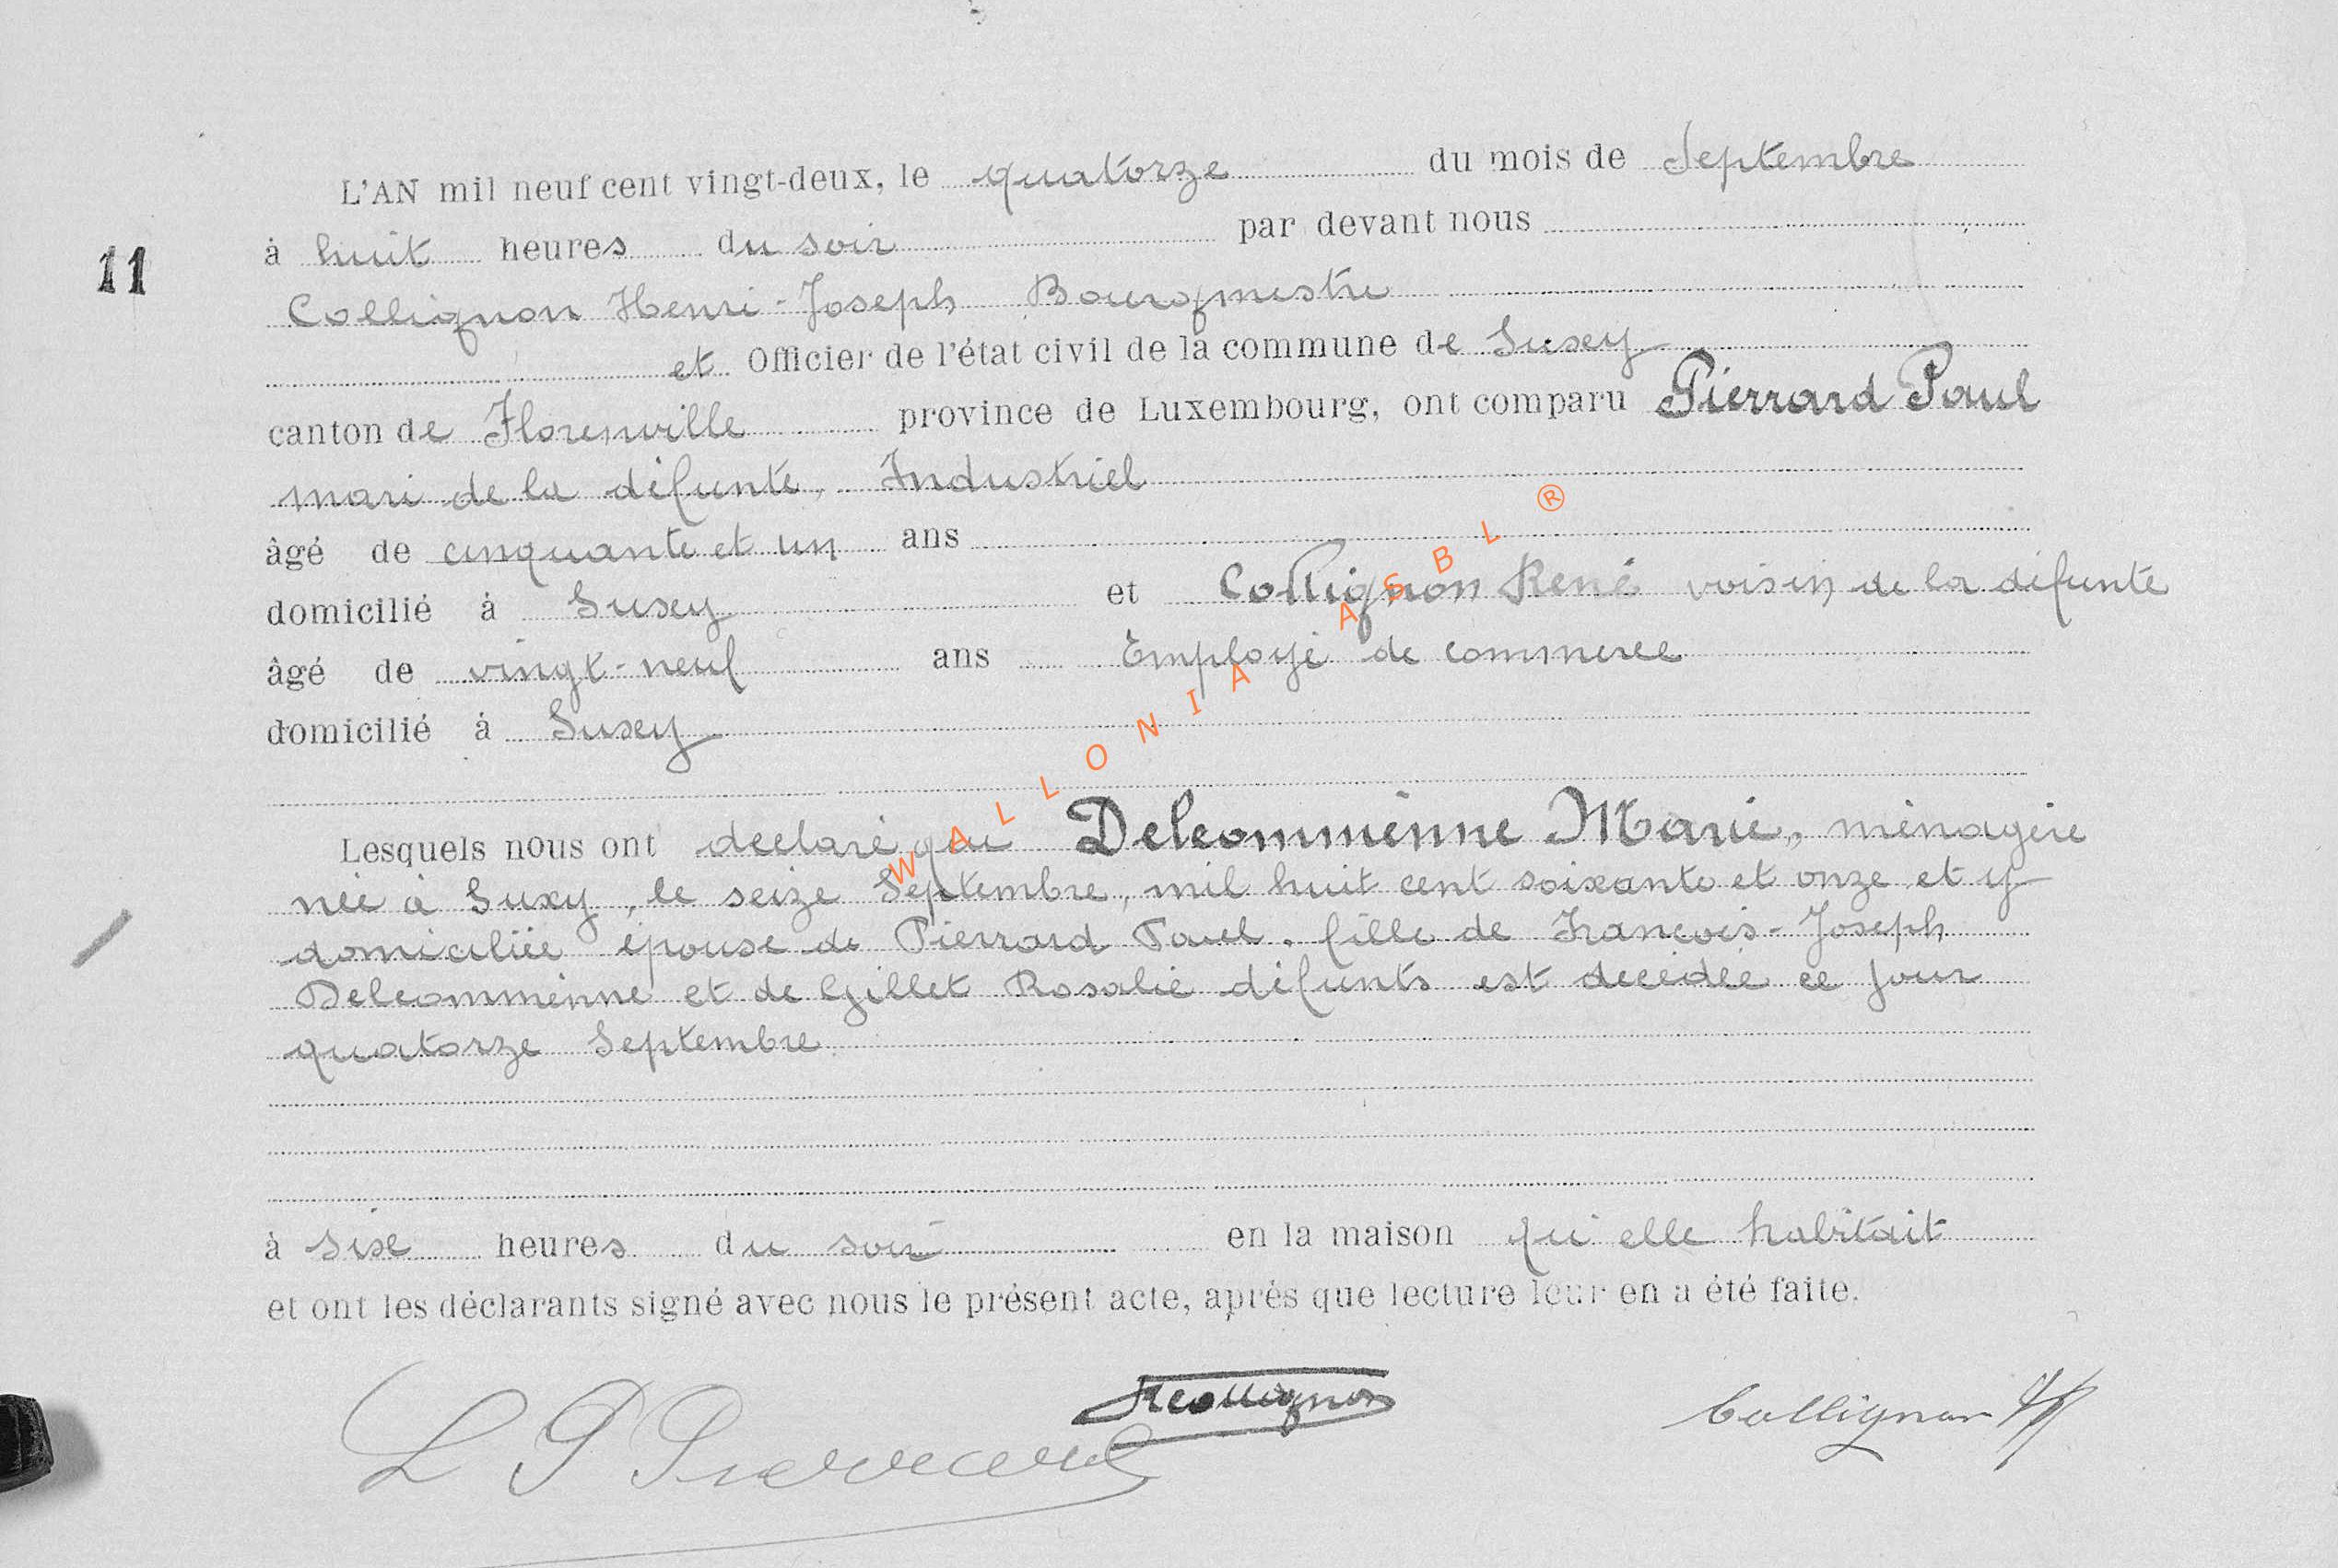 L'AN mil neuf cent vingt-deux, le quatorze du mois de Septembre
11
à huit heures du soir par devant nous
Collignon Henri-Joseph Bourgmestre
et Officier de l'état civil de la commune de Suxy
canton de Florenville province de Luxembourg, ont comparu Pierrard Paul
mari de la défunte, Industriel
âgé de cinquante et un ans
domicilié à Suxy et Collignon René voisin de la défunte
âgé de vingt-neuf ans Employé de commerce
domicilié à Suxy
WALLONIA ASBL ®
Lesquels nous ont déclaré que Delcomminne Marie, ménagère
née à Suxy, le seize Septembre, mil huit cent soixante et onze et y
domiciliée épouse de Pierrard Paul, fille de François-Joseph
Delcomminne et de Gillet Rosalie défunts est décédée ce jour
quatorze Septembre
à six heures du soir en la maison qu'elle habitait
et ont les déclarants signé avec nous le présent acte, après que lecture leur en a été faite.
RCollignon
Collignon HJ
L P Pierrard